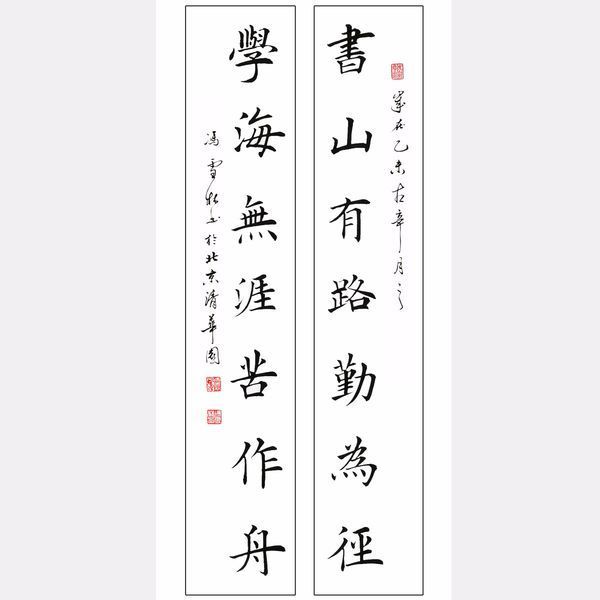 書山有路勤為徑
歲在乙未
月之
學海無涯苦作舟
馮雪松書於北京清華園